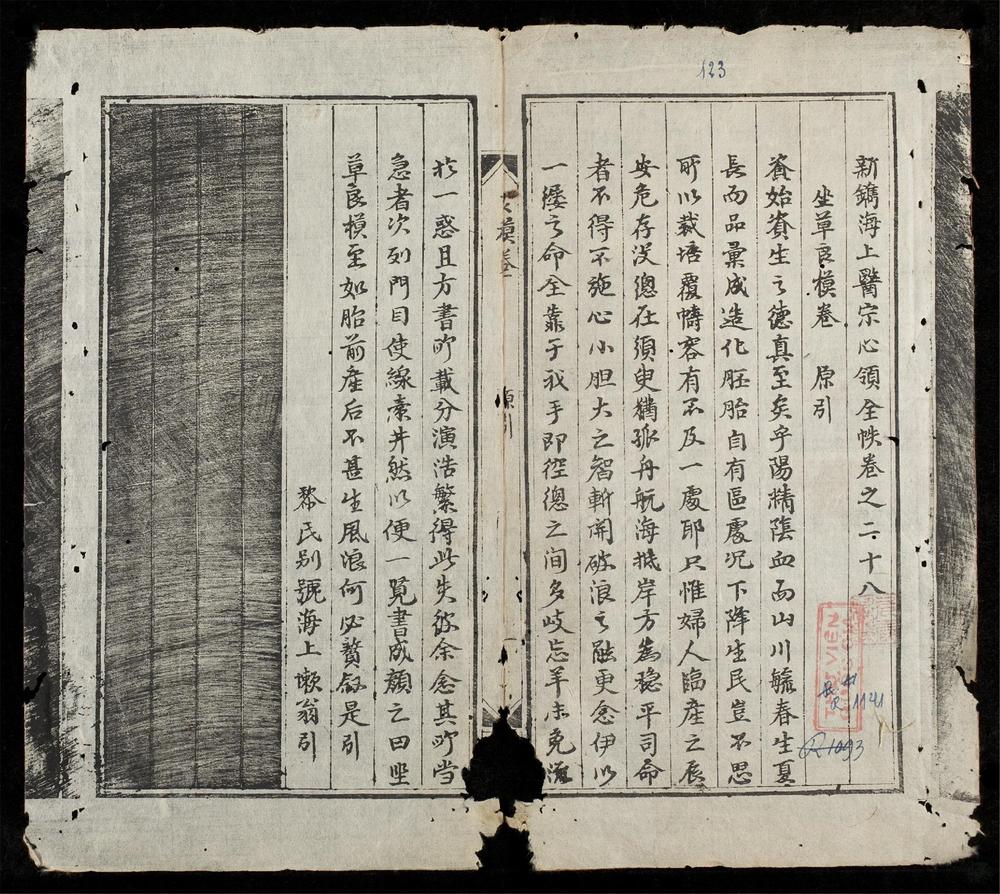 123
新鐫海上醫宗心領全帙卷之二十八
坐草良模卷 原引
資始資生之德真至矣乎陽精陰血而山川毓春生夏
長而品彙成造化胚胎自有區處况下降生民豈不思
所以栽培覆幬容有不及一處耶只惟婦人臨產之辰
安危存没總在須臾猶孤舟航海抵岸方為穩平司命
者不得不施心小胆大之智斬開破浪之 更念伊以
一縷之命全靠于我手即倥傯之间多岐忘羊未免
於一惑且方書所載分演浩繁得此失彼余念其所当
急者次列門目使線索井然以便一覧書成顏之曰坐
草良模至如胎前產后不甚生風浪何必贅叙是引
黎氏别號海上懒翁引
模卷
原引
一
R 1141
R 1093